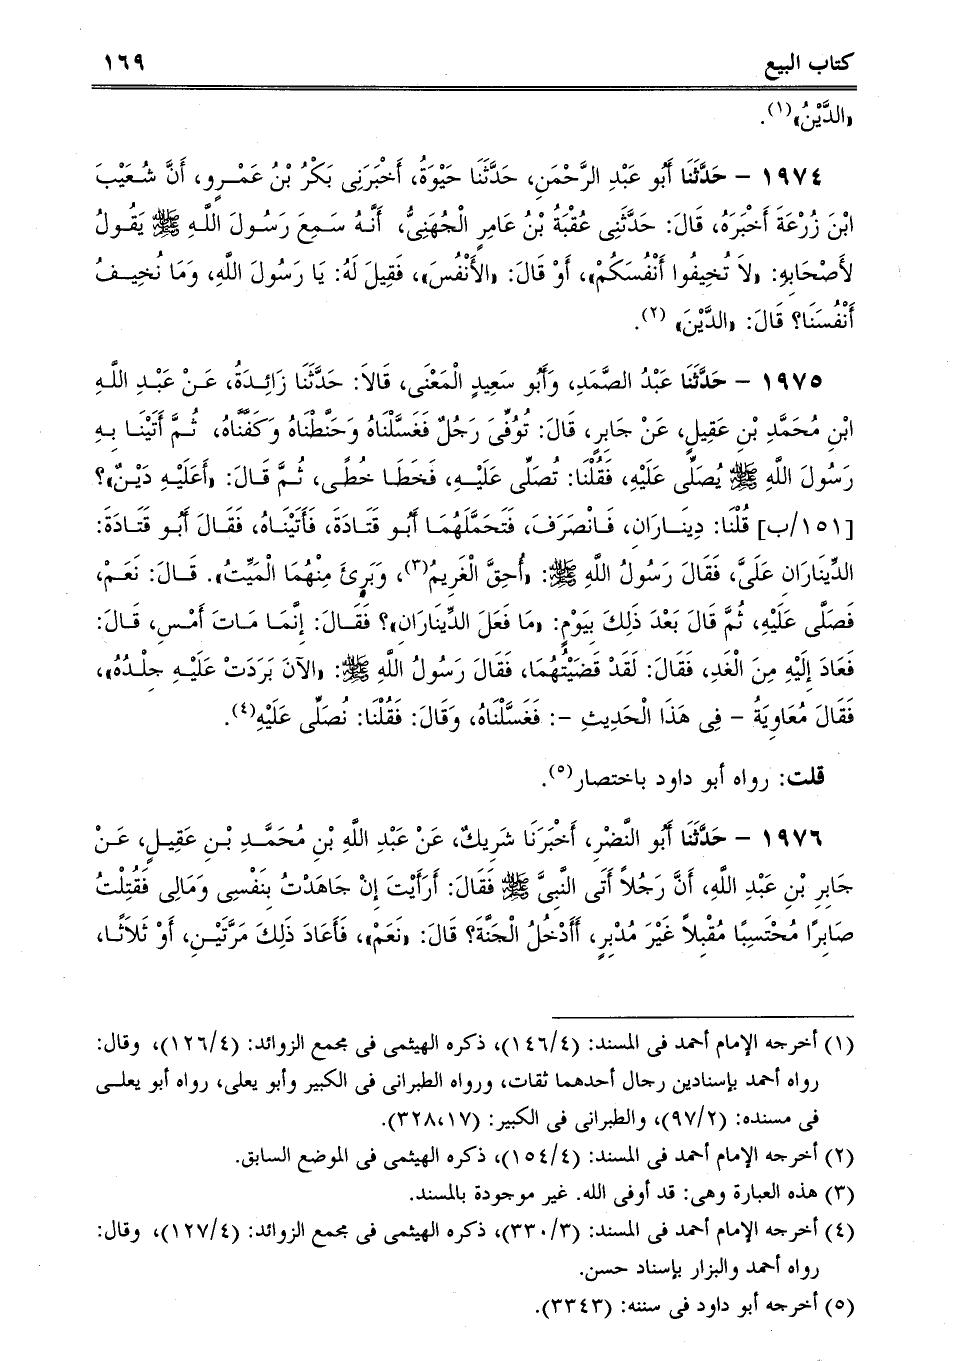 كتاب البيع ١٦٩
«الدَّيْنُ»(١).
١٩٧٤ – حَدَّثَنَا أَبُو عَبْدِ الرَّحْمَنِ، حَدَّثَنَا حَيْوَةُ، أَخْبَرَنِى بَكْرُ بْنُ عَمْرٍو، أَنَّ شُعَيْبَ
ابْنَ زُرْعَةَ أَخْبَرَهُ، قَالَ: حَدَّثَنِى عُقْبَةُ بْنُ عَامِرٍ الْجُهَنِىُّ، أَنَّهُ سَمِعَ رَسُولَ اللَّهِ ﷺ يَقُولُ
لأَصْحَابِهِ: «لاَ تُخِيفُوا أَنْفُسَكُمْ»، أَوْ قَالَ: «الأَنْفُسَ»، فَقِيلَ لَهُ: يَا رَسُولَ اللَّهِ، وَمَا نُخِيفُ
أَنْفُسَنَا؟ قَالَ: «الدَّيْنَ» (٢).
١٩٧٥ – حَدَّثَنَا عَبْدُ الصَّمَدِ، وَأَبُو سَعِيدٍ الْمَعْنَى، قَالاَ: حَدَّثَنَا زَائِدَةُ، عَنْ عَبْدِ اللَّهِ
ابْنِ مُحَمَّدِ بْنِ عَقِيلٍ، عَنْ جَابِرٍ، قَالَ: تُوُفِّىَ رَجُلٌ فَغَسَّلْنَاهُ وَحَنَّطْنَاهُ وَكَفَّنَّاهُ، ثُمَّ أَتَيْنَا بِهِ
رَسُولَ اللَّهِ ﷺ يُصَلِّى عَلَيْهِ، فَقُلْنَا: تُصَلِّى عَلَيْهِ، فَخَطَا خُطًى، ثُمَّ قَالَ: «أَعَلَيْهِ دَيْنٌ»؟
[١٥١/ب] قُلْنَا: دِينَارَانِ، فَانْصَرَفَ، فَتَحَمَّلَهُمَا أَبُو قَتَادَةَ، فَأَتَيْنَاهُ، فَقَالَ أَبُو قَتَادَةَ:
الدِّينَارَانِ عَلَىَّ، فَقَالَ رَسُولُ اللَّهِ ﷺ: «أُحِقَّ الْغَرِيمُ(٣)، وَبَرِئَ مِنْهُمَا الْمَيِّتُ». قَالَ: نَعَمْ،
فَصَلَّى عَلَيْهِ، ثُمَّ قَالَ بَعْدَ ذَلِكَ بِيَوْمٍ: «مَا فَعَلَ الدِّينَارَانِ»؟ فَقَالَ: إِنَّمَا مَاتَ أَمْسِ، قَالَ:
فَعَادَ إِلَيْهِ مِنَ الْغَدِ، فَقَالَ: لَقَدْ قَضَيْتُهُمَا، فَقَالَ رَسُولُ اللَّهِ ﷺ: «الآنَ بَرَدَتْ عَلَيْهِ جِلْدُهُ»،
فَقَالَ مُعَاوِيَةُ – فِى هَذَا الْحَدِيثِ –: فَغَسَّلْنَاهُ، وَقَالَ: فَقُلْنَا: نُصَلِّى عَلَيْهِ(٤).
قلت: رواه أبو داود باختصار(٥).
١٩٧٦ – حَدَّثَنَا أَبُو النَّضْرِ، أَخْبَرَنَا شَرِيكٌ، عَنْ عَبْدِ اللَّهِ بْنِ مُحَمَّدِ بْنِ عَقِيلٍ، عَنْ
جَابِرِ بْنِ عَبْدِ اللَّهِ، أَنَّ رَجُلاً أَتَى النَّبِىَّ ﷺ فَقَالَ: أَرَأَيْتَ إِنْ جَاهَدْتُ بِنَفْسِى وَمَالِى فَقُتِلْتُ
صَابِرًا مُحْتَسِبًا مُقْبِلاً غَيْرَ مُدْبِرٍ، أَأَدْخُلُ الْجَنَّةَ؟ قَالَ: «نَعَمْ»، فَأَعَادَ ذَلِكَ مَرَّتَيْنِ، أَوْ ثَلاَثًا،
(١) أخرجه الإمام أحمد فى المسند: (١٤٦/٤)، ذكره الهيثمى فى مجمع الزوائد: (١٢٦/٤)، وقال:
رواه أحمد بإسنادين رجال أحدهما ثقات، ورواه الطبرانى فى الكبير وأبو يعلى، رواه أبو يعلى
فى مسنده: (٩٧/٢)، والطبرانى فى الكبير: (٣٢٨،١٧).
(٢) أخرجه الإمام أحمد فى المسند: (١٥٤/٤)، ذكره الهيثمى فى الموضع السابق.
(٣) هذه العبارة وهى: قد أوفى الله. غير موجودة بالمسند.
(٤) أخرجه الإمام أحمد فى المسند: (٣٣٠/٣)، ذكره الهيثمى فى مجمع الزوائد: (١٢٧/٤)، وقال:
رواه أحمد والبزار بإسناد حسن.
(٥) أخرجه أبو داود فى سننه: (٣٣٤٣).